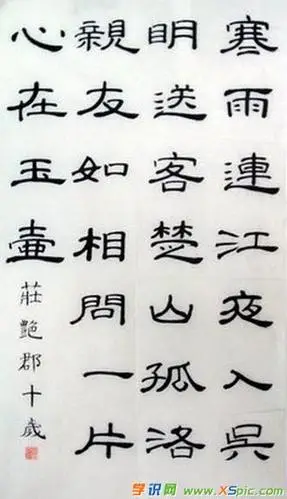 寒雨連江夜入吳
明送客楚山孤洛
親友如相問一片
心在玉壺
莊艷郡十歲
学识网 www.XSpic.com